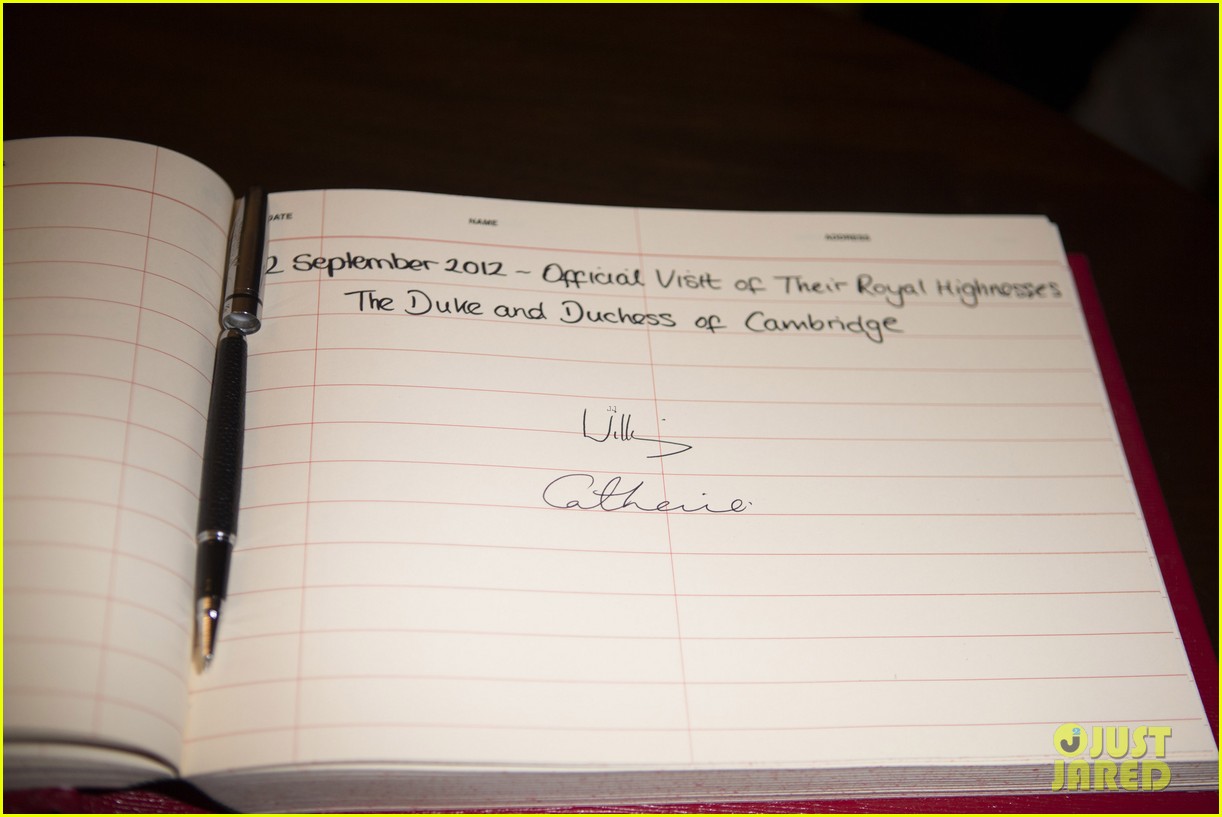 DATE NAME ADDRESS
2 September 2012 - Official Visit of Their Royal Highnesses
The Duke and Duchess of Cambridge
William
Catherine
JUST
JARED